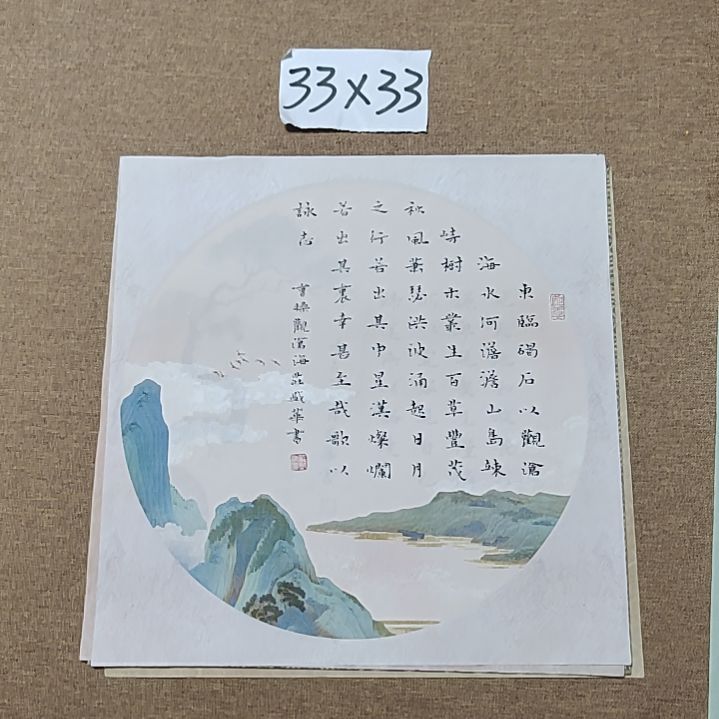 33×33
東臨碣石以觀滄
海水河澹澹山島竦
峙樹木叢生百草豐茂
秋風蕭瑟洪波涌起日月
之行若出其中星漢燦爛
若出其裏幸甚至哉歌以
詠志 曹操觀滄海莊盛華書